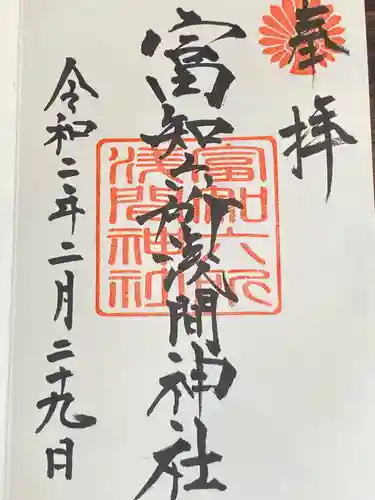 奉拝
富知六所浅間神社
富知六所
浅間神社
令和二年二月二十九日